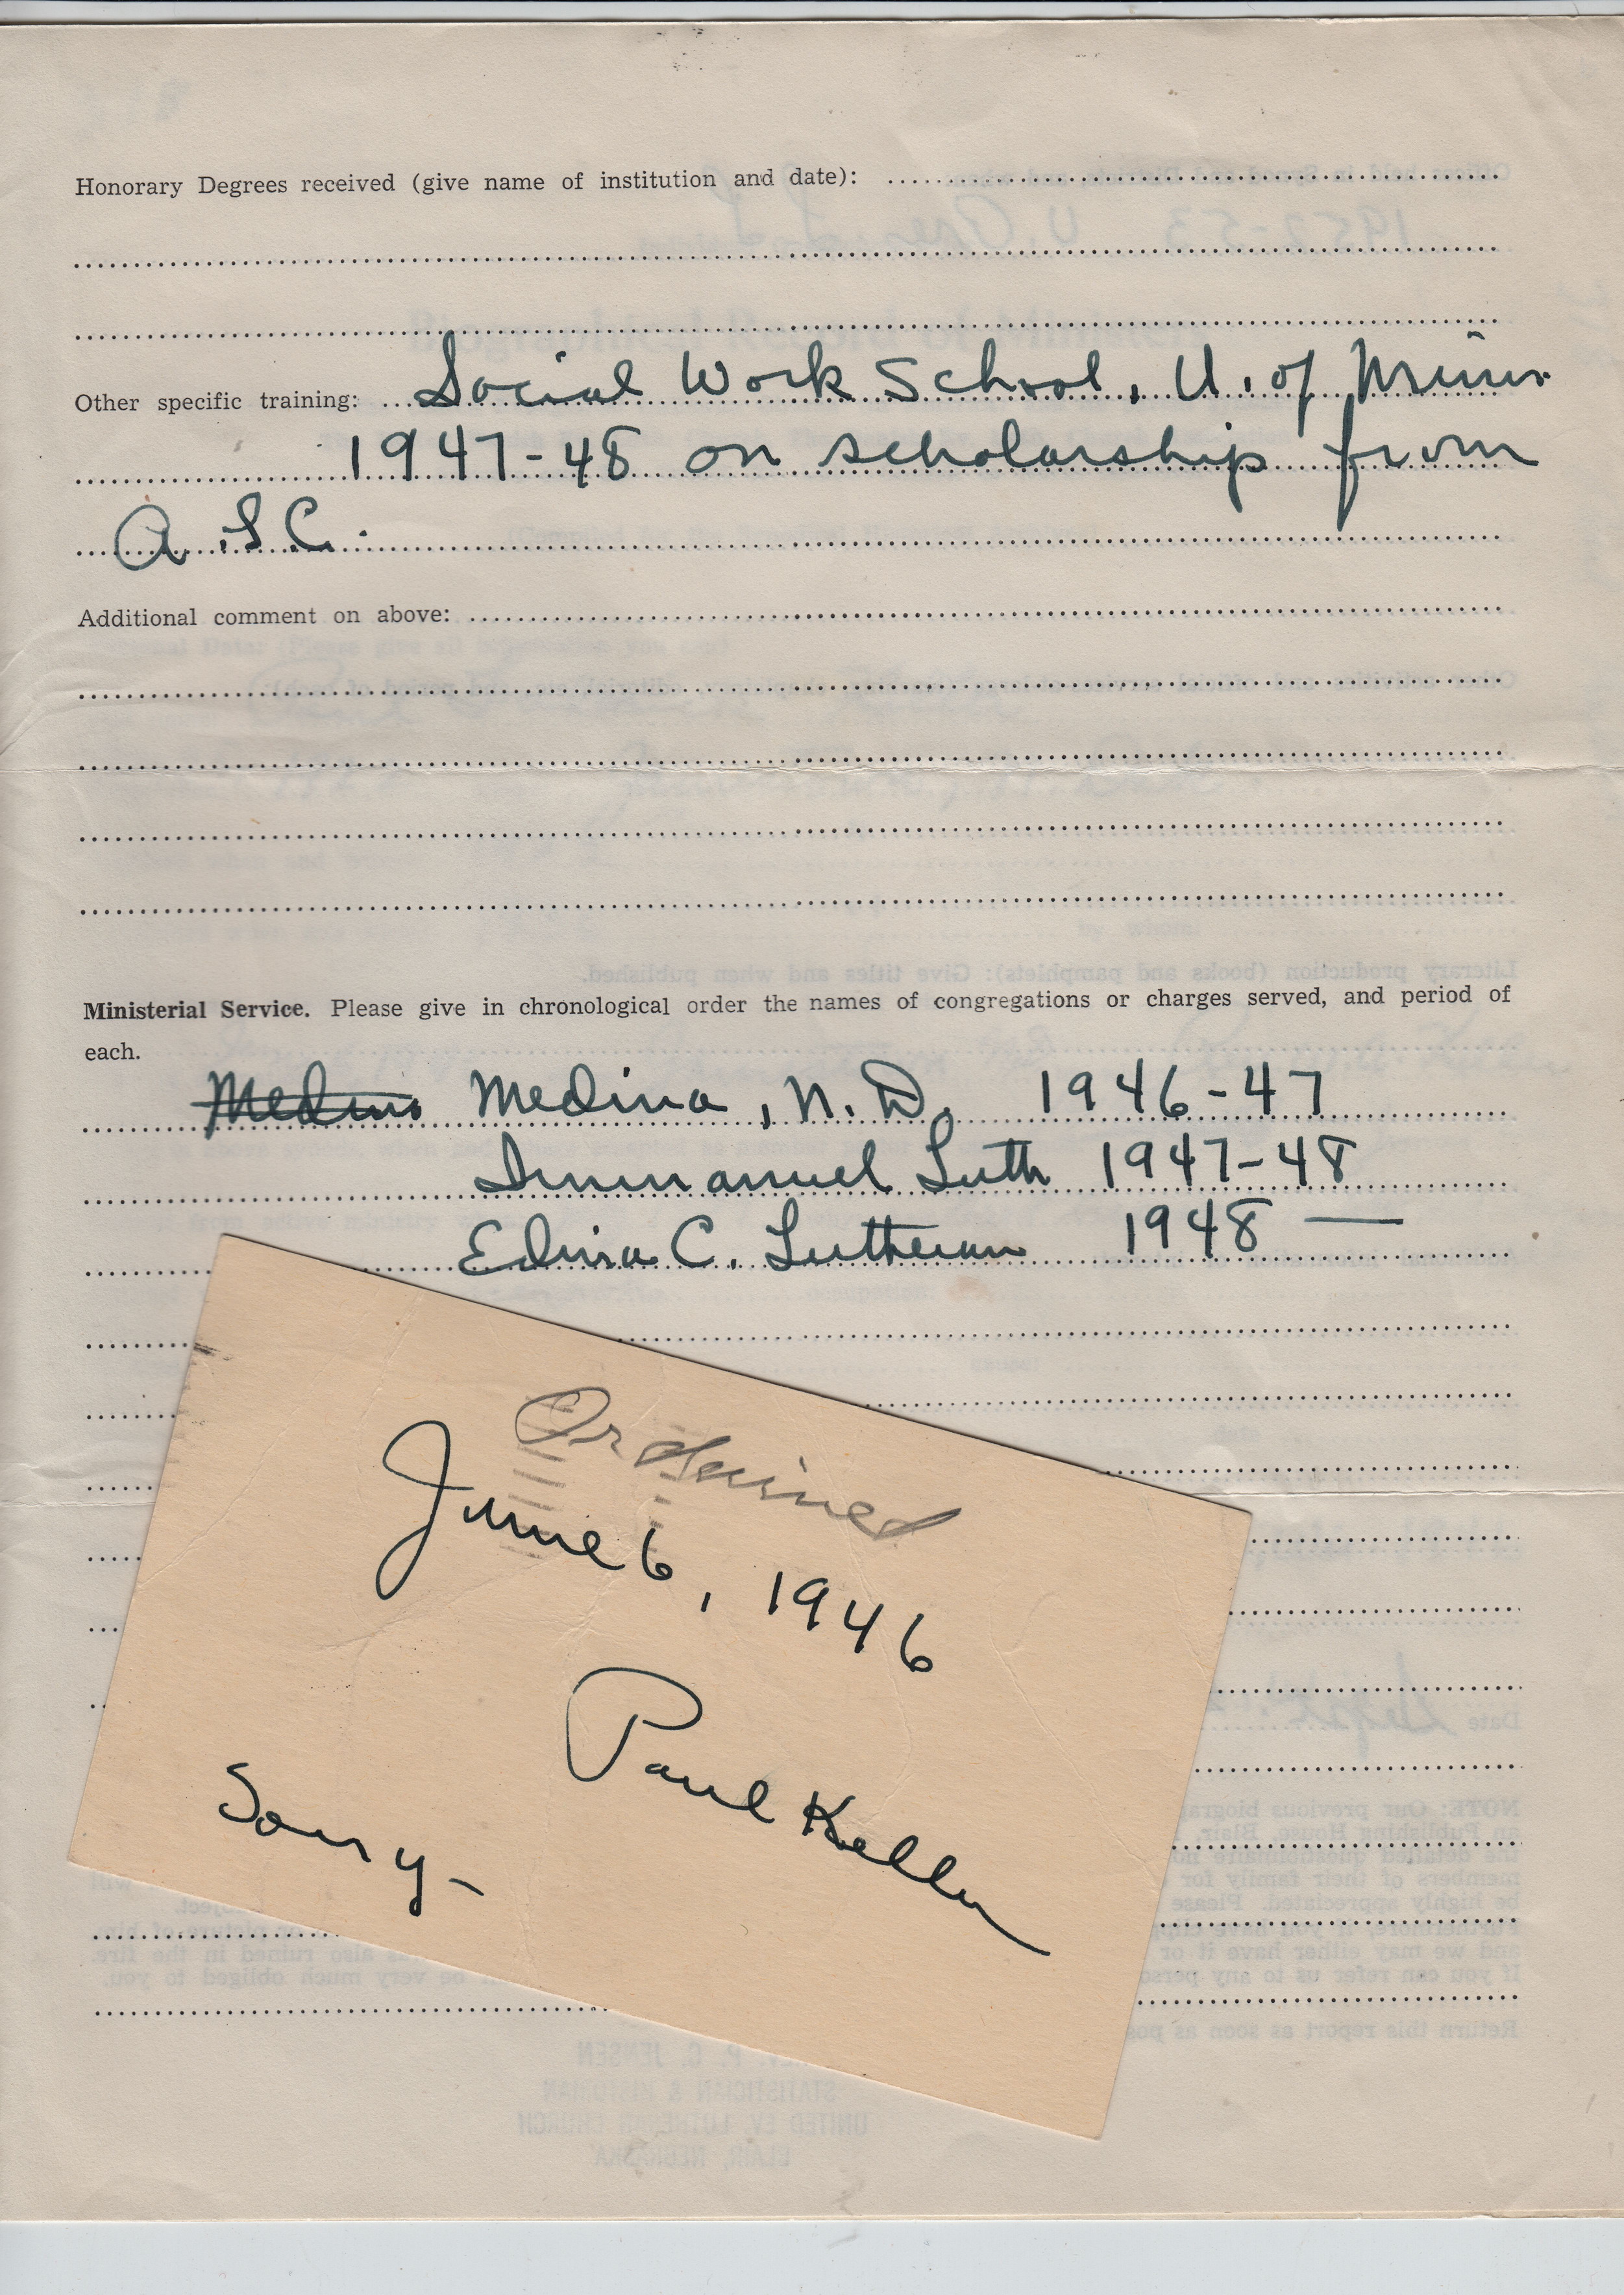 Honorary Degrees received (give name of institution and date):
Other specific training: Social Work School, U. of Minn.
1947-48 on scholarship from
A.L.C.
Additional comment on above:
Ministerial Service. Please give in chronological order the names of congregations or charges served, and period of
each.
Medina, N.D. 1946-47
Immanuel Luth 1947-48
Edina C. Lutheran 1948 —
Ordained
June 6, 1946
Paul Keller
Sorry-